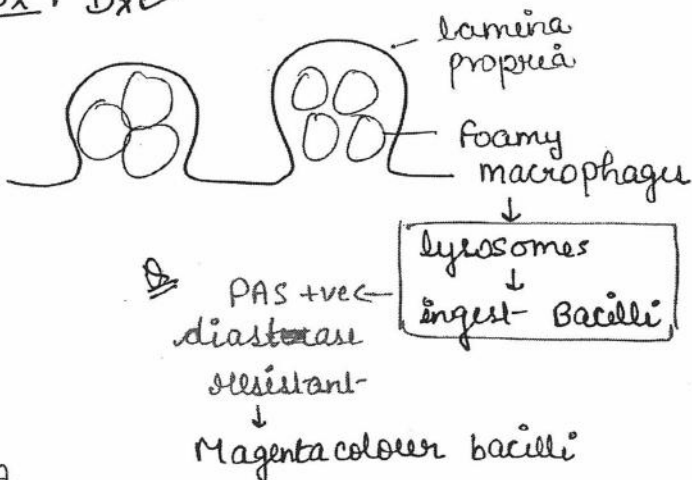 lamina
propria
foamy
macrophages
↓
lysosomes
↓
ingest Bacilli
Q. PAS +vec ←
diasterase
resistant
↓
Magenta colour bacilli